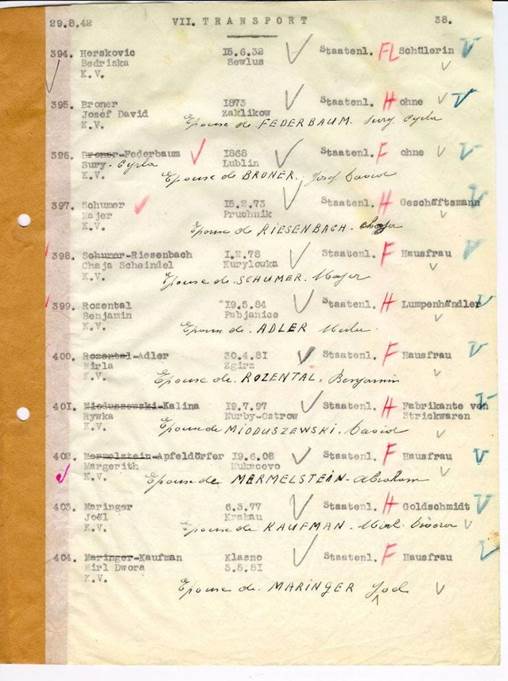 29.8.42 VII. TRANSPORT 38.
394. Herskovic 15.6.32 Staatenl. FL Schülerin
Bedriska Sewlus
K.V.
395. Broner 1873 Staatenl. H ohne
Josef David Zaklikow
K.V. Epouse de FEDERBAUM. Sury Cyrla
396. Broner-Federbaum 1868 Staatenl. F ohne
Sury-Cyrla Lublin
K.V. Epouse de BRONER. Josef David
397. Schumer 15.2.73 Staatenl. H Geschäftsmann
Majer Pruchnik
K.V. Epouse de RIESENBACH. Chaja
398. Schumer-Riesenbach 1.2.78 Staatenl. F Hausfrau
Chaja Scheindel Kurylowka
K.V. Epouse de SCHUMER. Majer
399. Rozental 19.5.84 Staatenl. H Lumpenhändler
Benjamin Pabjanice
K.V. Epouse de ADLER
400. Rozental-Adler 30.4.81 Staatenl. F Hausfrau
Mirla Zgirz
K.V. Epouse de ROZENTAL. Benjamin
401. Mioduszewski-Kalina 19.7.97 Staatenl. H Fabrikante von
Rywka Nurby-Ostrow Strickwaren
K.V. Epouse de MIODUSZEWSKI. David
402. Mermelstein-Apfeldörfer 19.6.08 Staatenl. F Hausfrau
Margerith Mukacevo
K.V. Epouse de MERMELSTEIN-Abraham
403. Maringer 6.3.77 Staatenl. H Goldschmidt
Joël Krakau
K.V. Epouse de KAUFMAN.
404. Maringer-Kaufman Klasno Staatenl. F Hausfrau
Mirl Dwora 5.5.81
K.V. Epouse de MARINGER Joel